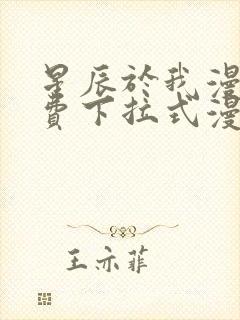 星辰於我漫
費下拉式漫
王亦菲